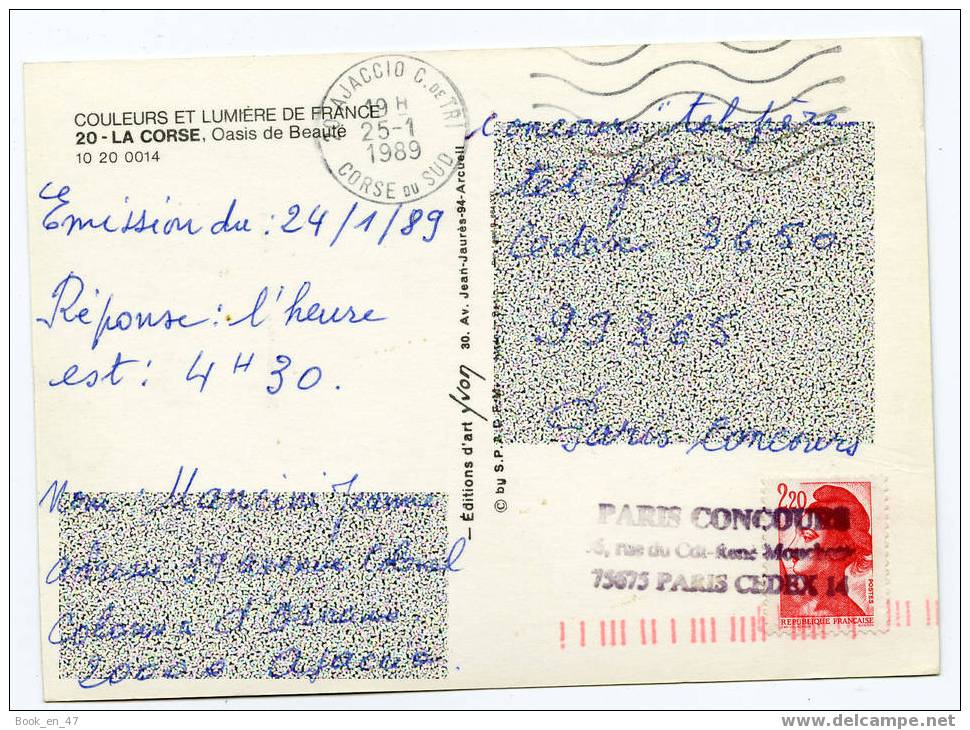 COULEURS ET LUMIÈRE DE FRANCE
20 - LA CORSE, Oasis de Beauté
10 20 0014
AJACCIO C. DE TRI
19 H
25-1
1989
CORSE DU SUD
Emission du : 24/1/89
Réponse : l'heure
est : 4 H 30.
Nom : Mancini Jeanne
39 avenue Colonel
Colonna d'Ornano
20000 Ajaccio.
— Éditions d'art Yvon 30. Av. Jean-Jaurès-94-Arcueil
© by S.P.A.D.E.M.
Concours "tel père
tel fils
Cedex 3650
99365
Paris Concours
2,20
POSTES
REPUBLIQUE FRANÇAISE
PARIS CONCOURS
rue du Cdt-René Mouchotte
75675 PARIS CEDEX 14
Book_en_47
www.delcampe.net